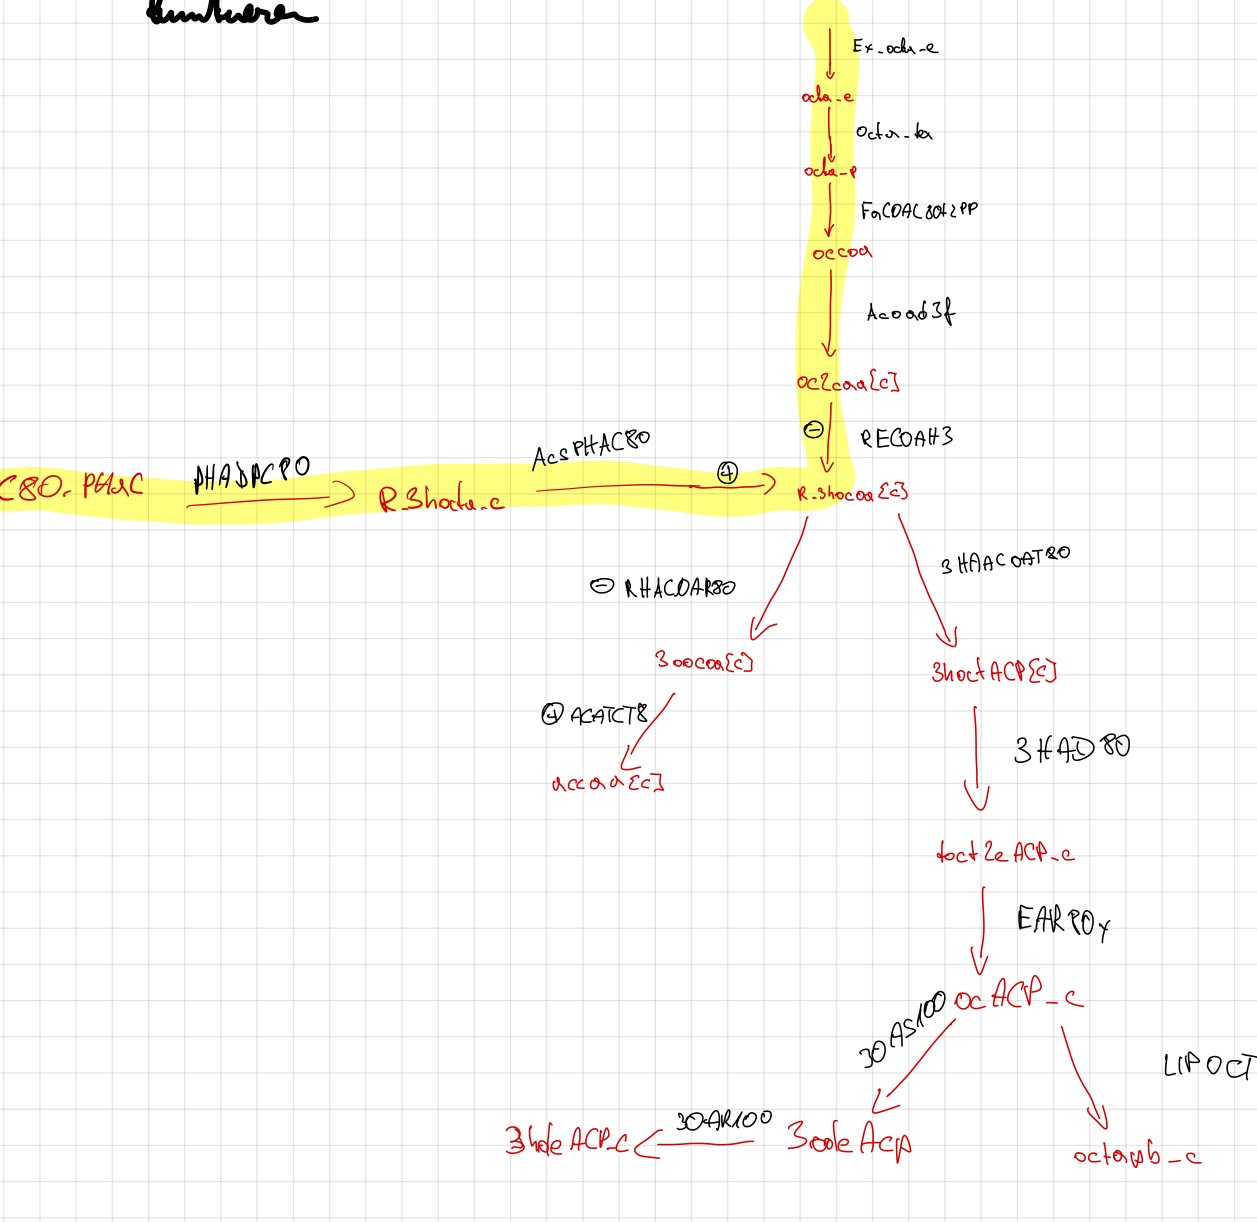 Ex_octa_e
octa_e
Octa_tex
octa_p
FaCOAC80t2PP
occoa
Acoad3f
oc2coa[c]
⊖ RECOAH3
C80.PHAC
PHADPC80
R_3hocta_c
AcsPHAC80
⊕
R_3hocoa[c]
⊖ RHACOAR80
3HAACOAT80
3oocoa[c]
3hoctACP[c]
⊕ ACATCT8
3HAD80
accoa[c]
toct2eACP_c
EAR80y
ocACP_c
3OAS100
LIPOCT
3OAR100
3hdeACP_c
3odeAcp
octapb_c